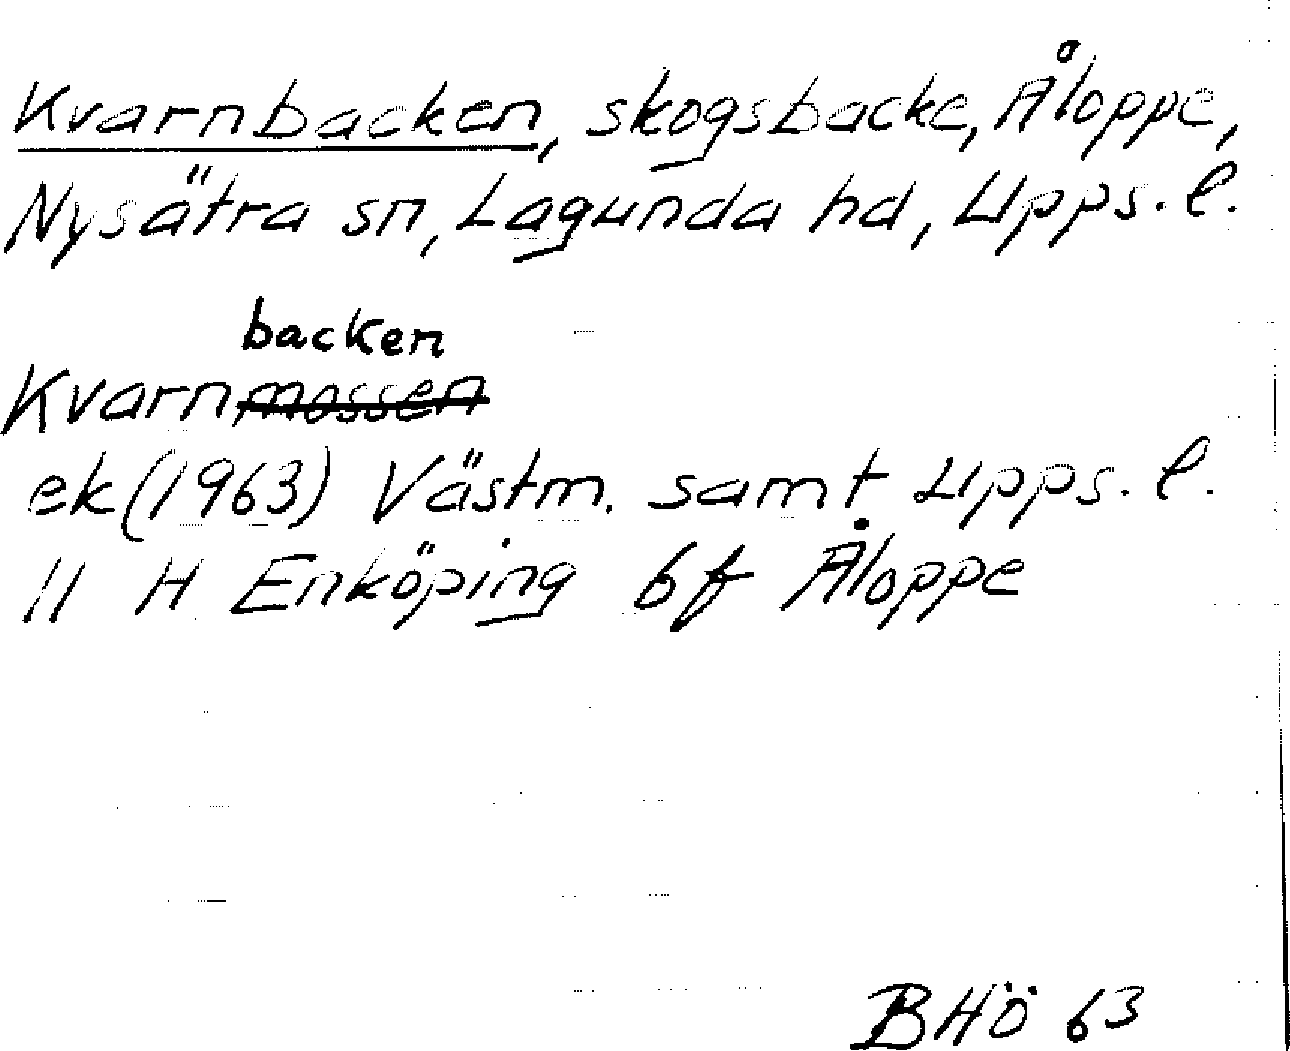 Kvarnbacken, skogsbacke, Åloppe,
Nysätra sn, Lagunda hd, Upps. l.
backen
Kvarnmossen
ek (1963) Västm. samt Upps. l.
11 H Enköping 6f Åloppe
BHÖ 63